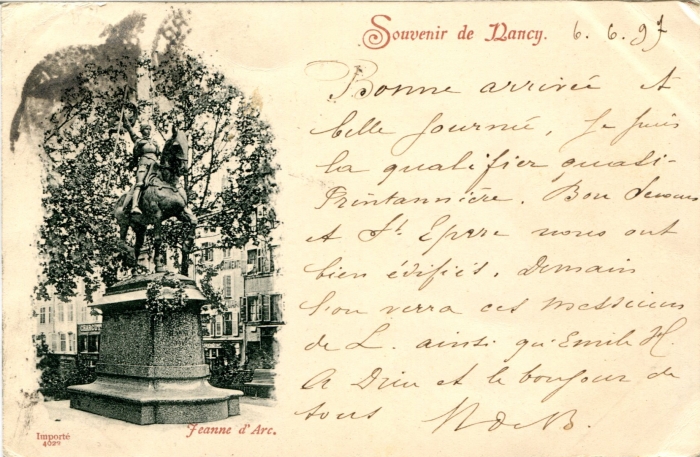 Souvenir de Nancy. 6. 6. 97
Bonne arrivée et
belle journée, je puis
la qualifier quasi-
Printannière. Bon
et St. Epvre nous ont
bien édifiés. Demain
l'on verra ces messieurs
de L. ainsi qu'Emile H.
A Dieu et le bonjour de
tous N de B.
Jeanne d'Arc.
Importé